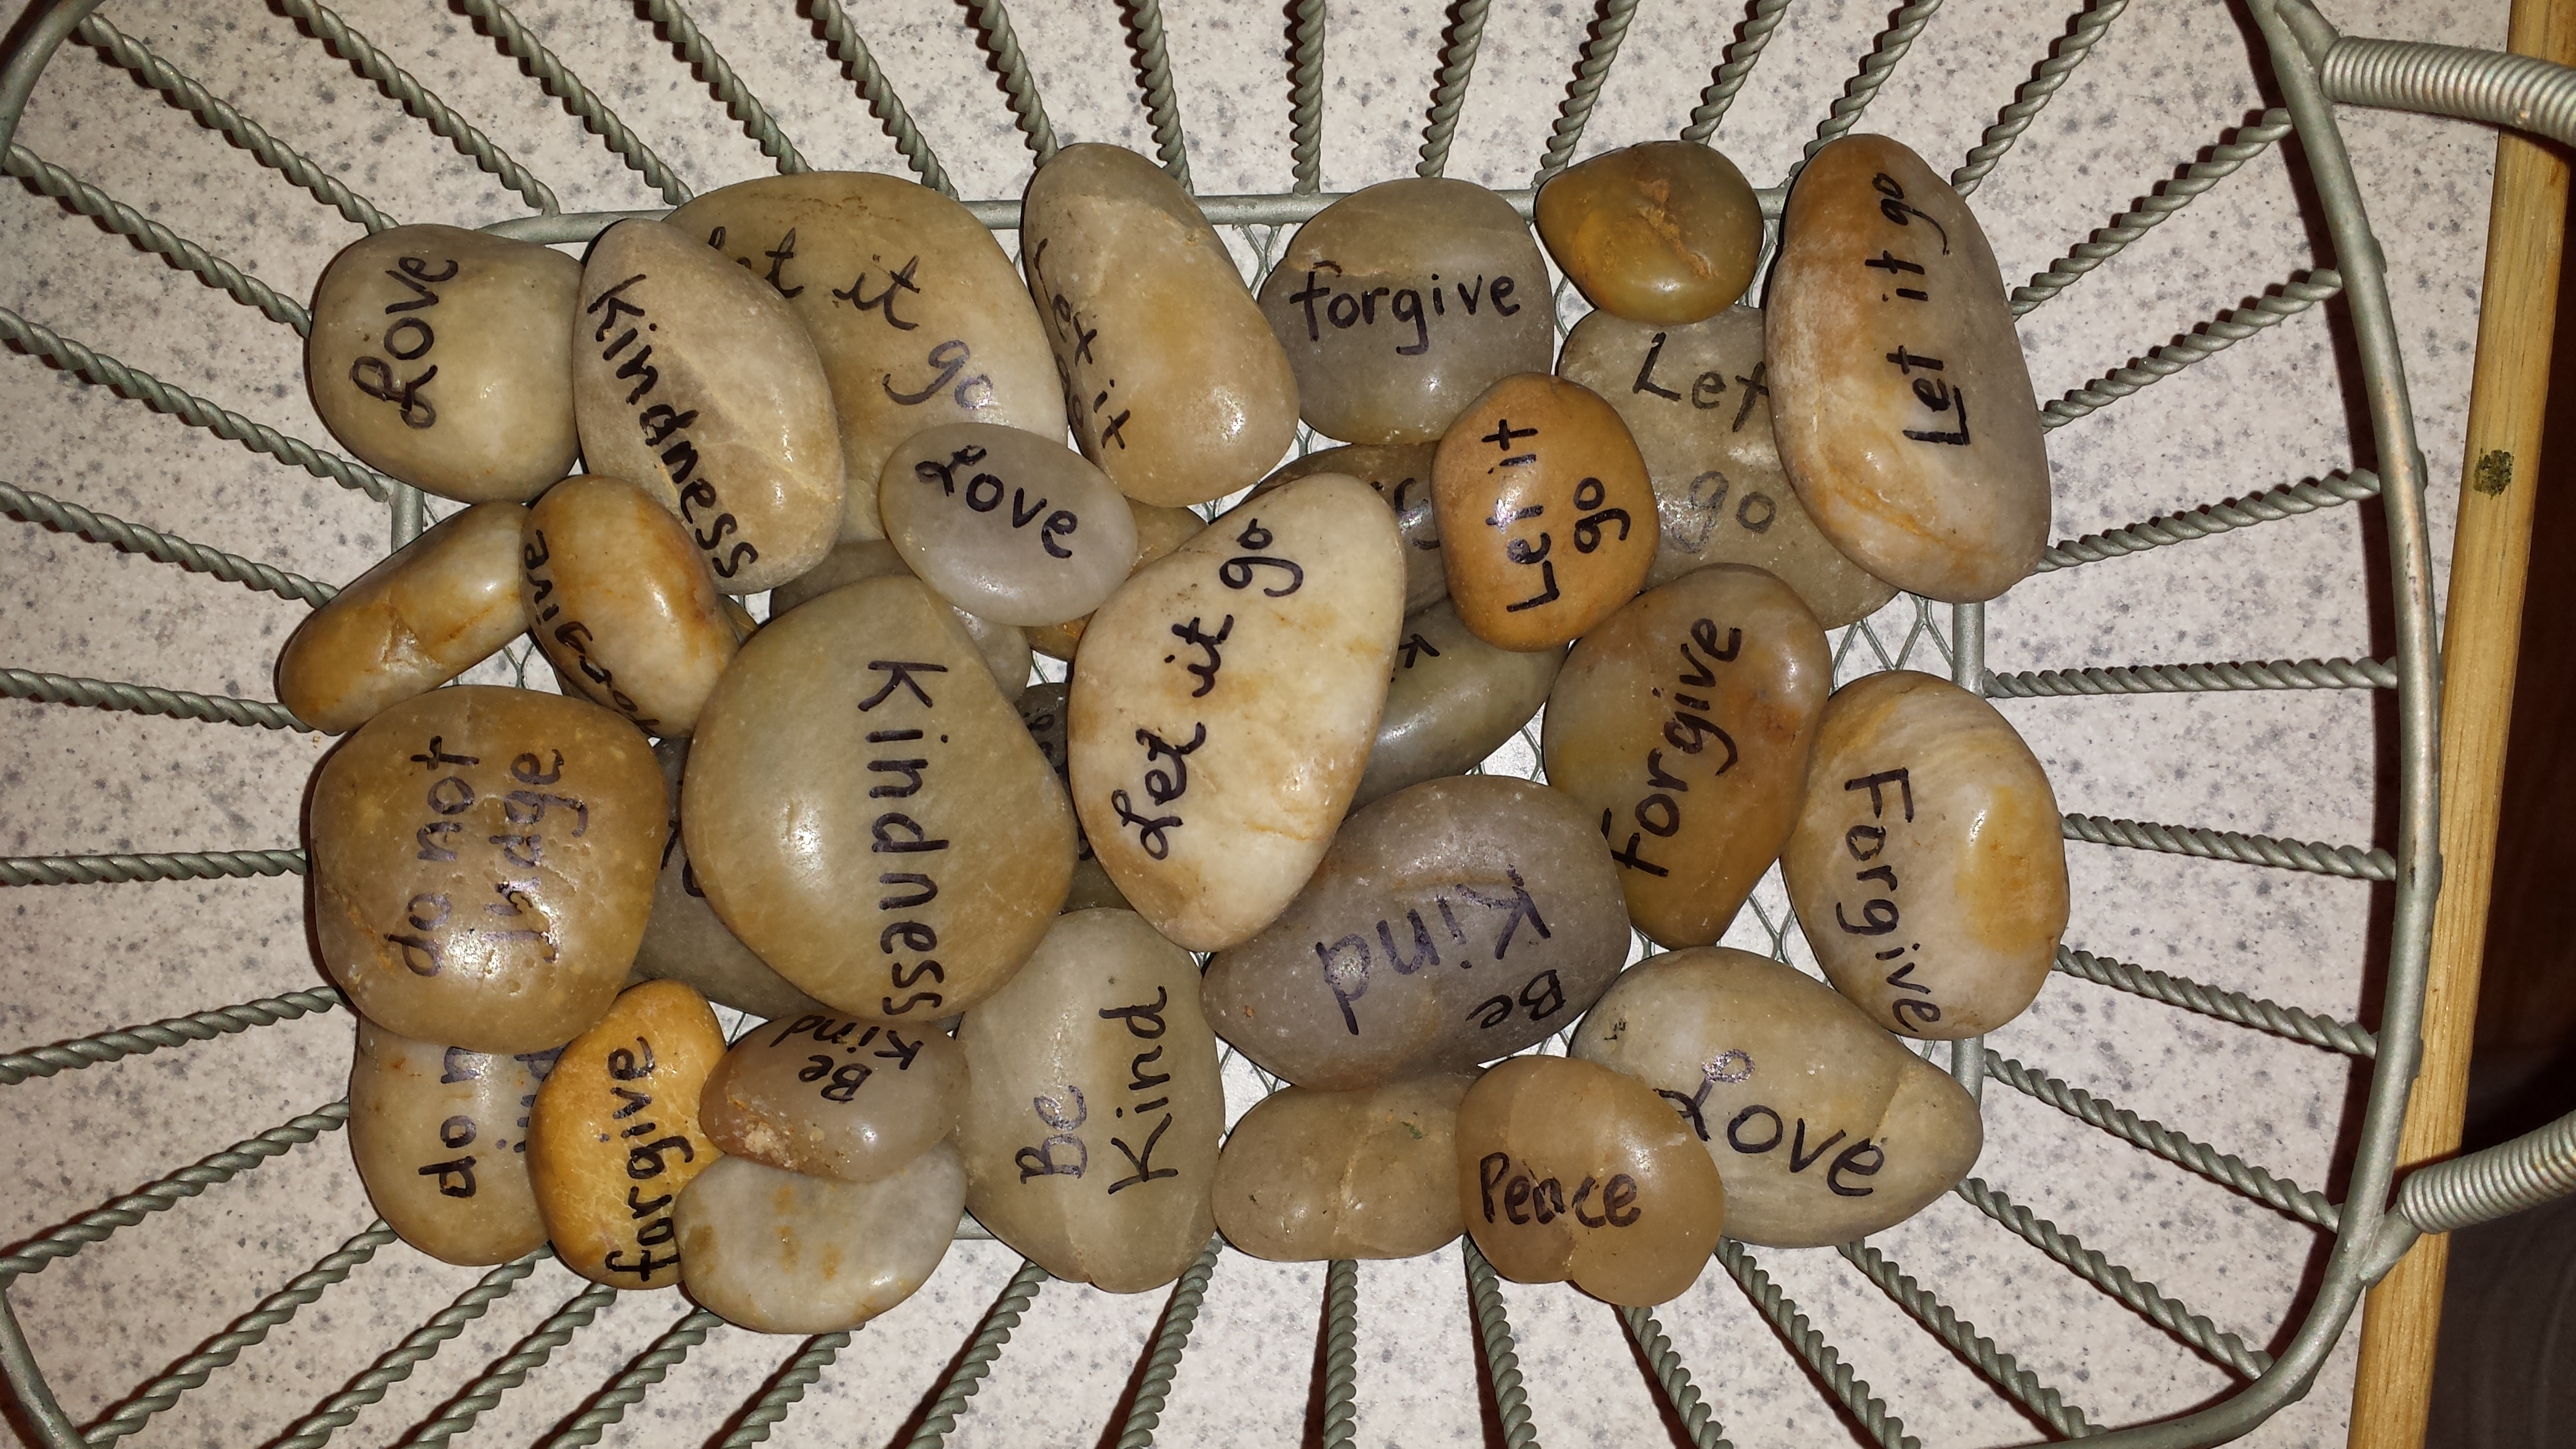 Love
Kindness
it
go
it
forgive
Let
go
Let it go
Love
Let it
go
Let it go
forgive
Kindness
Forgive
Forgive
do not
judge
Kind
Be
do
forgive
Be
Kind
Be
Kind
Love
Peace